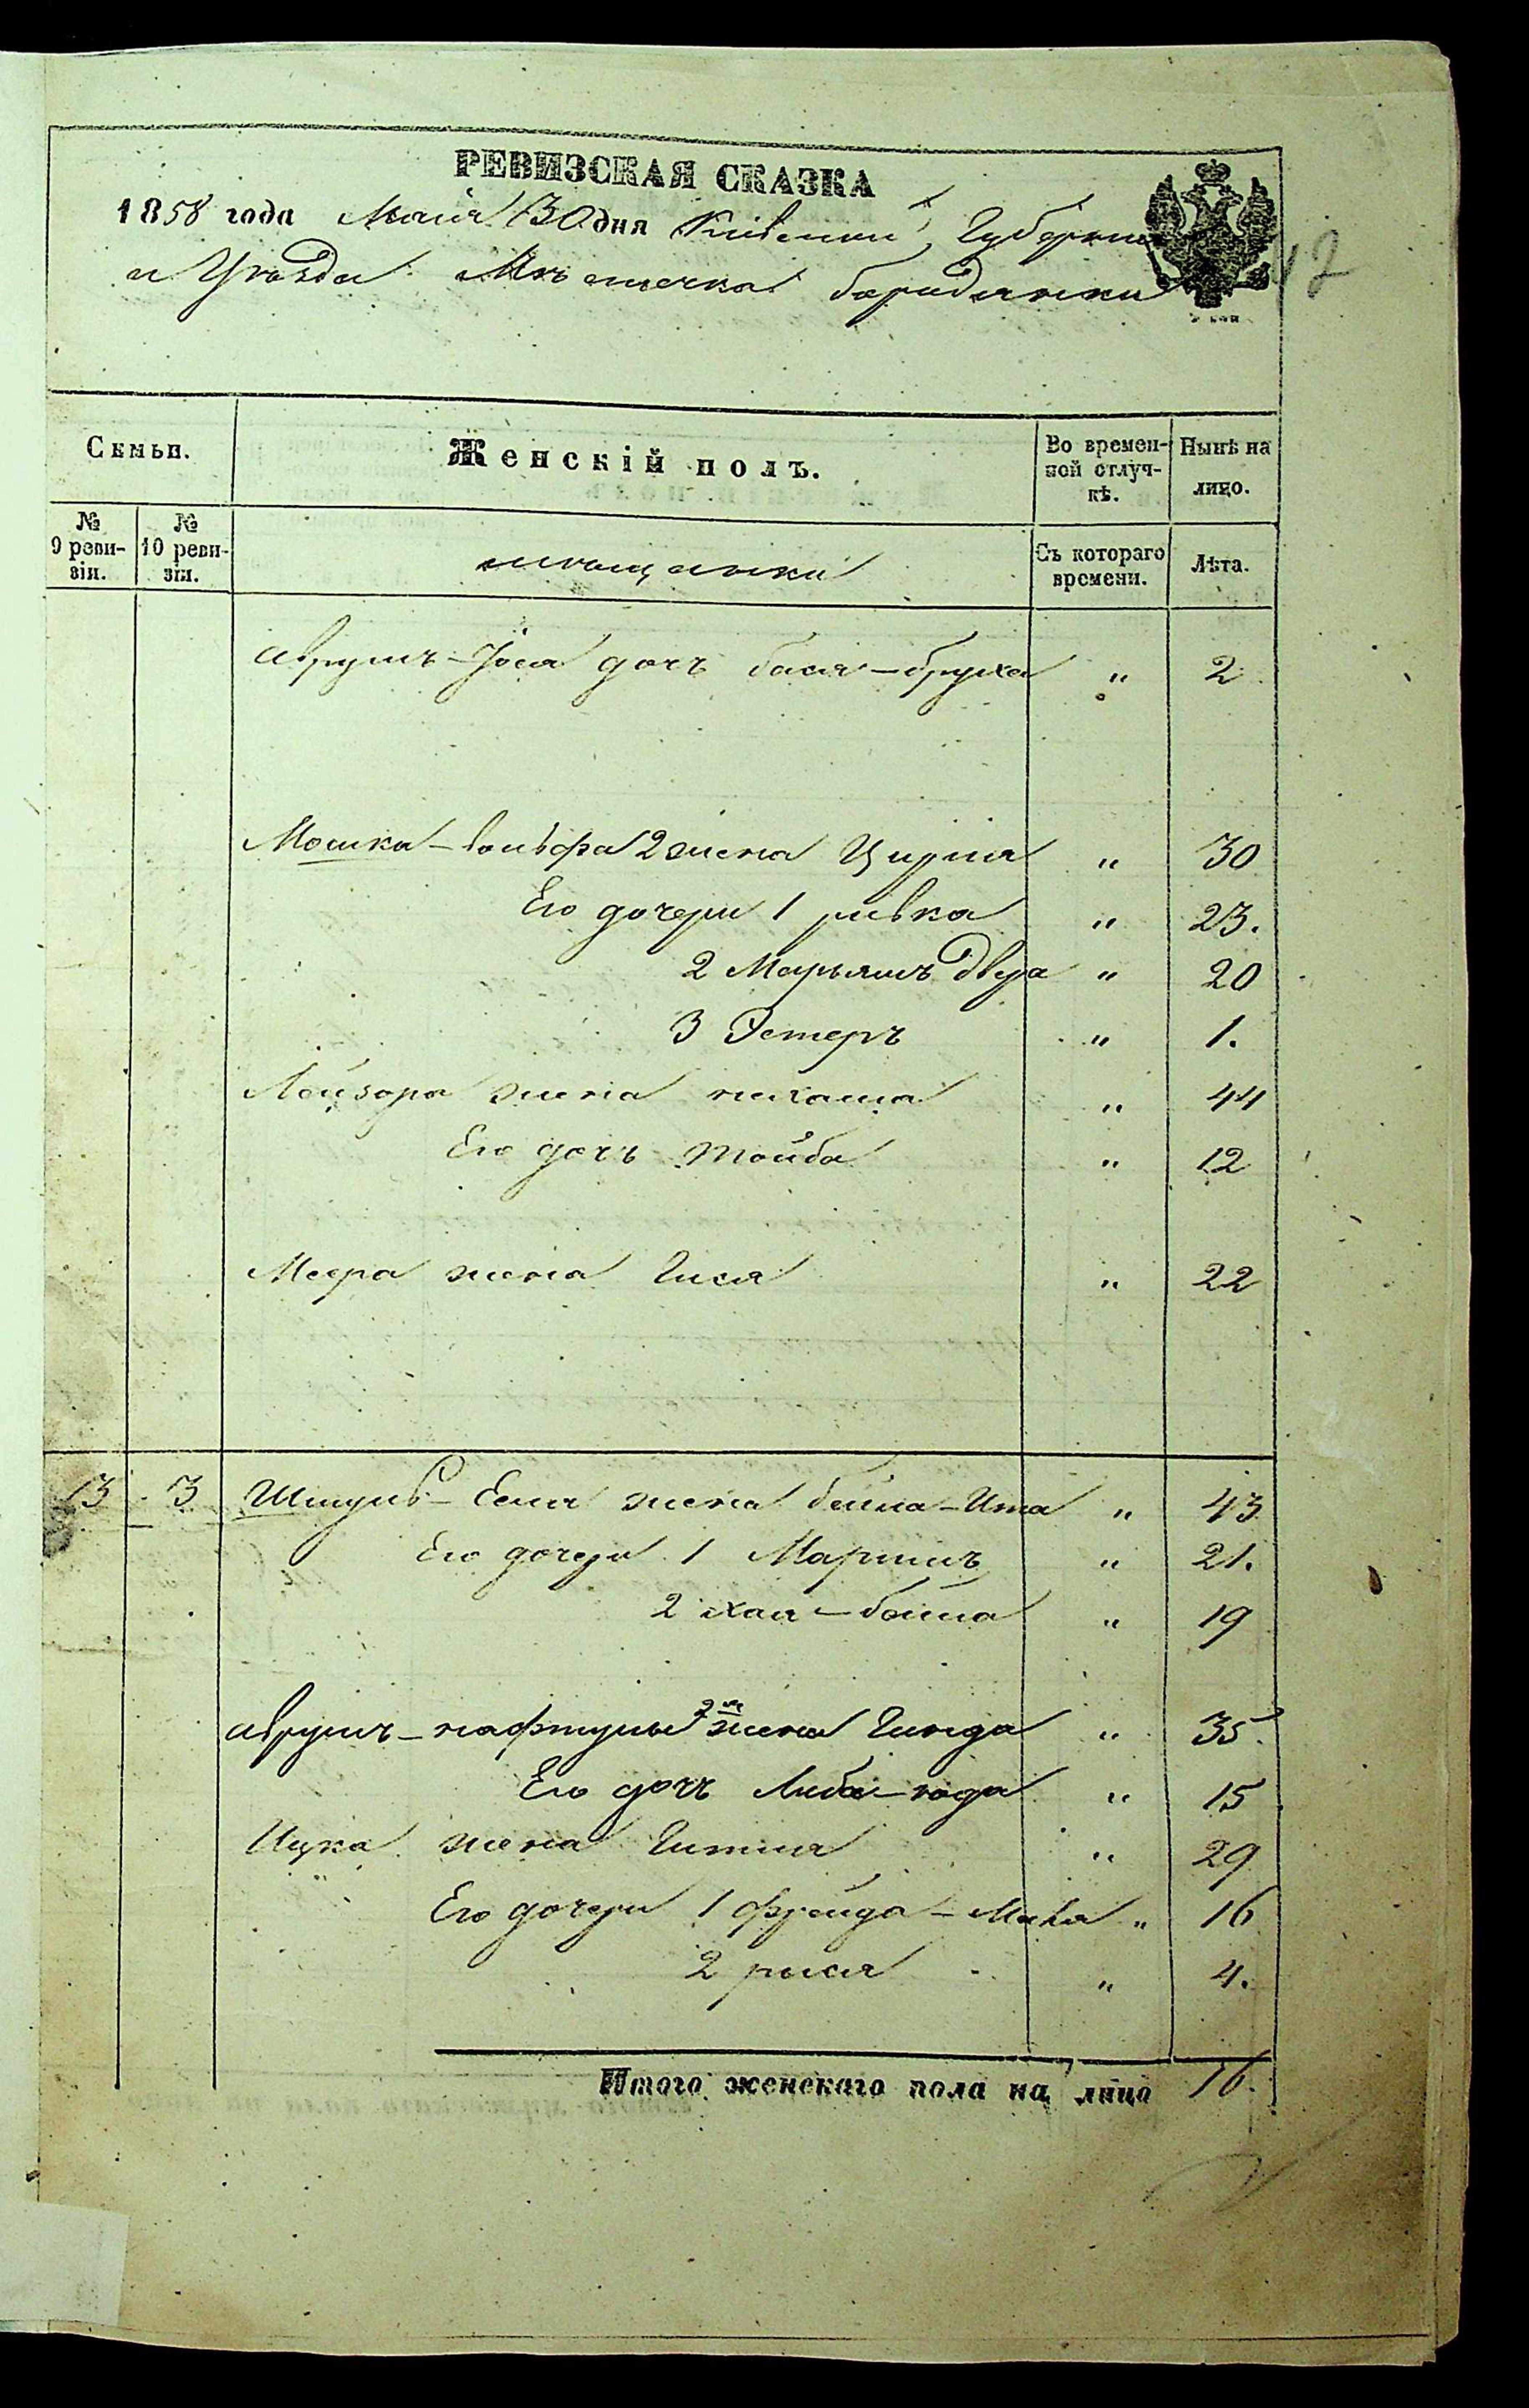 РЕВИЗСКАЯ СКАЗКА
1858 года Маія 30 дня Кіевской Губерніи
и Уѣзда Мѣстечка бородянки
17
Семьи.
Женскій полъ.
Во времен-
ной отлуч-
кѣ.
Нынѣ на
лицо.
№
9 реви-
зіи.
№
10 реви-
зіи.
мѣщанки
Съ котораго
времени.
Лѣта.
Аврумъ-Іося дочь бася-бруха " 2
Мошка-вольфа 2 жена Цирля " 30
Его дочери 1 ривка " 23.
2 Марьямъ двера " 20
3 Эстеръ " 1.
Лейзора жена нехама " 44
Его дочь тойба " 12
Меера жена Гися " 22
13 3 Шмуль-Еля жена бейла-Ита " 43
Его дочери 1 Маріимъ " 21.
2 хая-бейла " 19
Аврумъ-нафтулы 2я жена Гинда " 35.
Его дочь Либа-года " 15
Ицка жена Гитля " 29
Его дочери 1 фрейда-Миня " 16
2 рися " 4.
Итого женскаго пола на лицо 16.